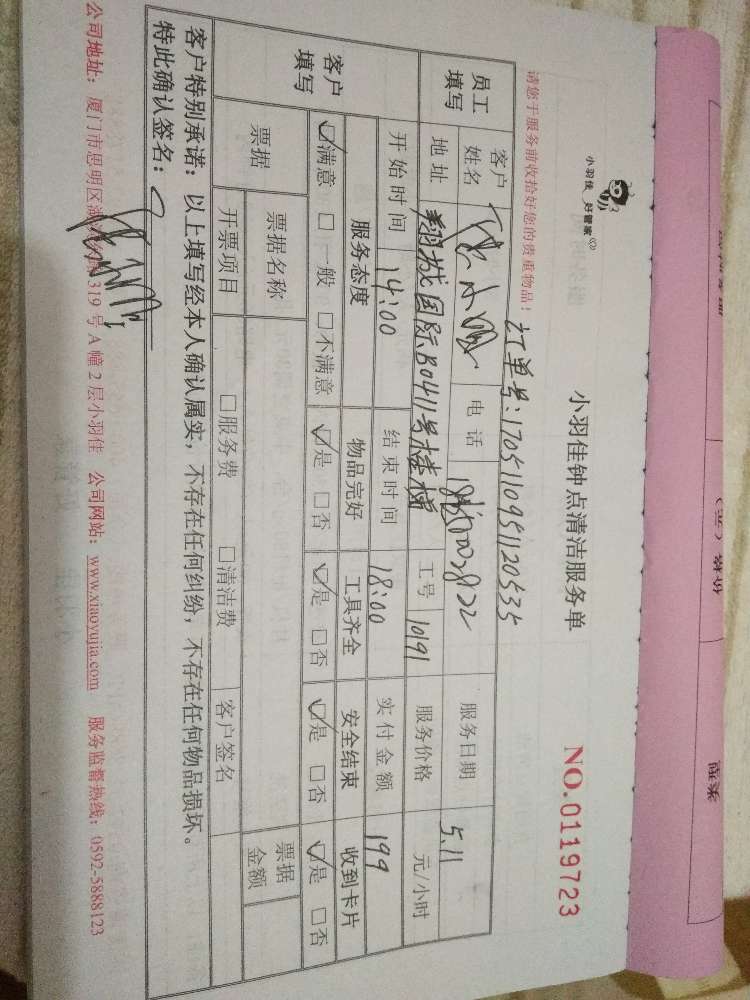 小羽佳 好管家
小羽佳钟点清洁服务单
NO.0119723
请您于服务前收拾好您的贵重物品!
订单号:1705110951120535
员工填写 客户姓名 电话 服务日期 5.11
地址 翔城国际B0411号楼梯 工号 10191 服务价格 元/小时
开始时间 14:00 结束时间 18:00 实付金额 199
客户填写 服务态度 物品完好 工具齐全 安全结束 收到卡片
☑满意 □一般 □不满意 ☑是 □否 ☑是 □否 ☑是 □否 ☑是 □否
票据 票据名称 票据金额
开票项目 □服务费 □清洁费 客户签名
客户特别承诺:以上填写经本人确认属实,不存在任何纠纷,不存在任何物品损坏。
特此确认签名:
公司地址:厦门市思明区 319号A幢2层小羽佳 公司网站:www.xiaoyujia.com 服务监督热线:0592-5888123